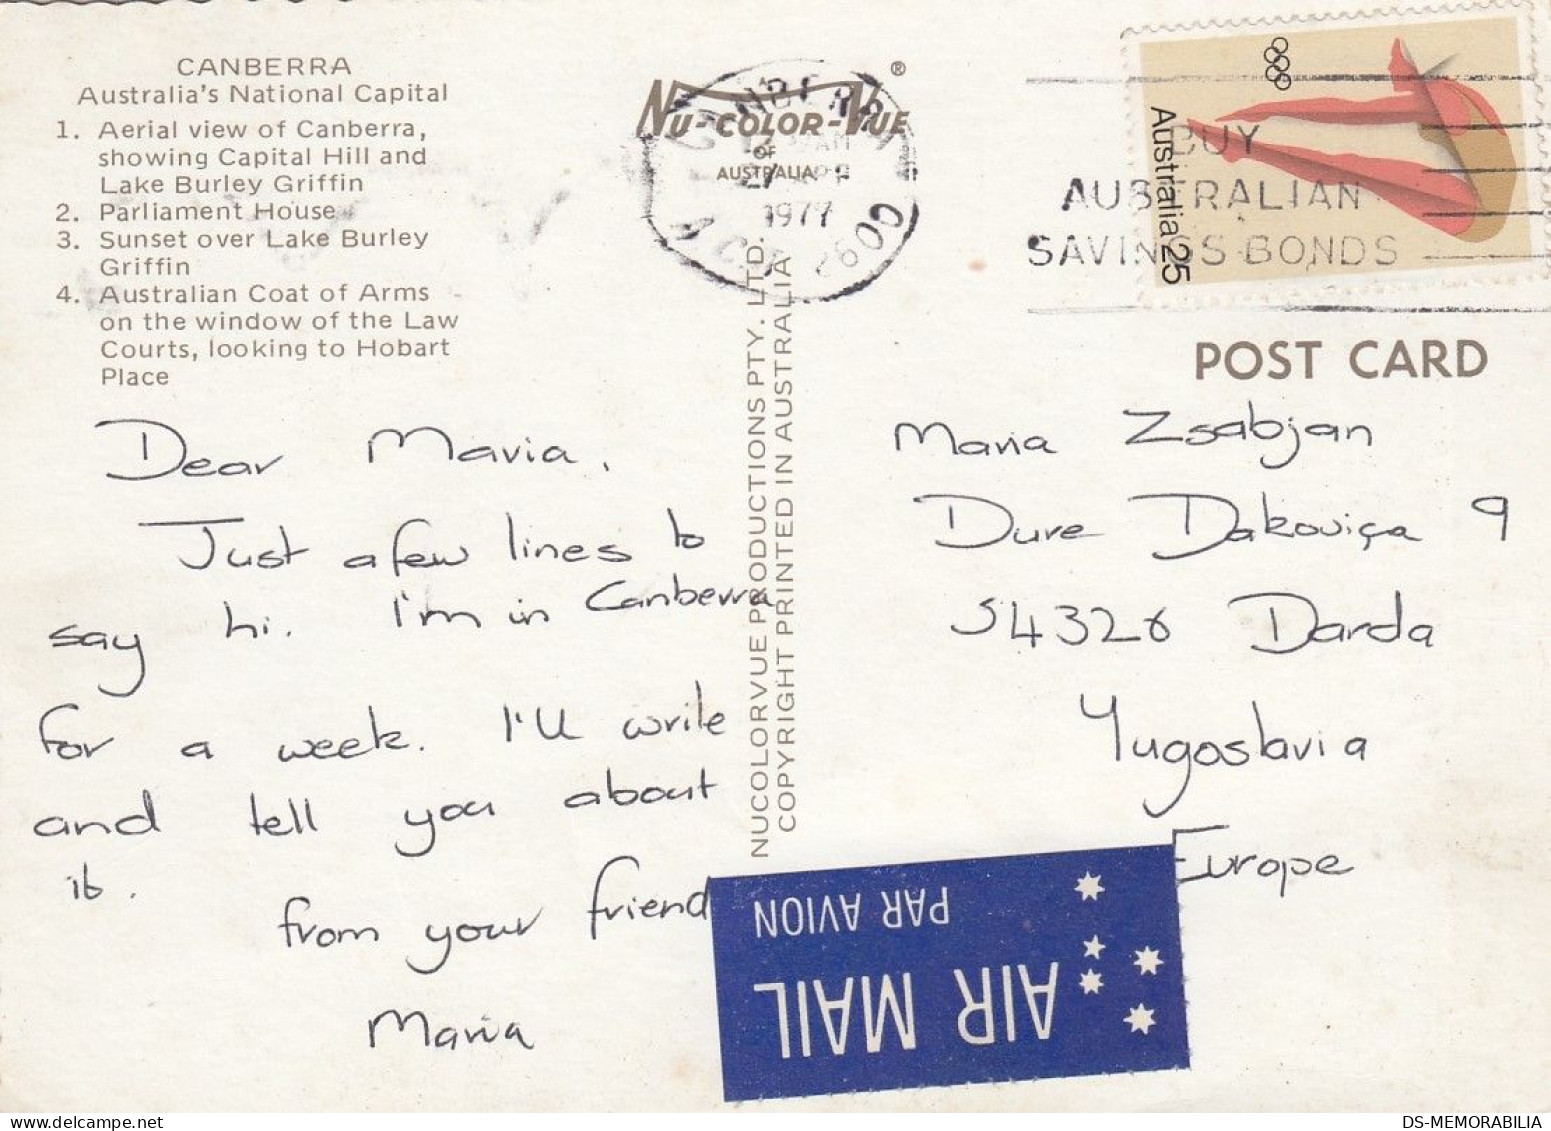 CANBERRA
Australia's National Capital
1. Aerial view of Canberra,
showing Capital Hill and
Lake Burley Griffin
2. Parliament House
3. Sunset over Lake Burley
Griffin
4. Australian Coat of Arms
on the window of the Law
Courts, looking to Hobart
Place
Dear Maria,
Just a few lines to
say hi. I'm in Canberra
for a week. I'll write
and tell you about
it.
from your friend
Maria
NU-COLOR-VUE ®
OF
AUSTRALIA
CANBERRA
27
1977
A.C.T 2600
NUCOLORVUE PRODUCTIONS PTY. LTD.
COPYRIGHT PRINTED IN AUSTRALIA
BUY
AUSTRALIAN
SAVINGS BONDS
Australia 25
POST CARD
Maria Zsabjan
Dure Dakoviça 9
54326 Darda
Yugoslavia
Europe
AIR MAIL
PAR AVION
DS-MEMORABILIA